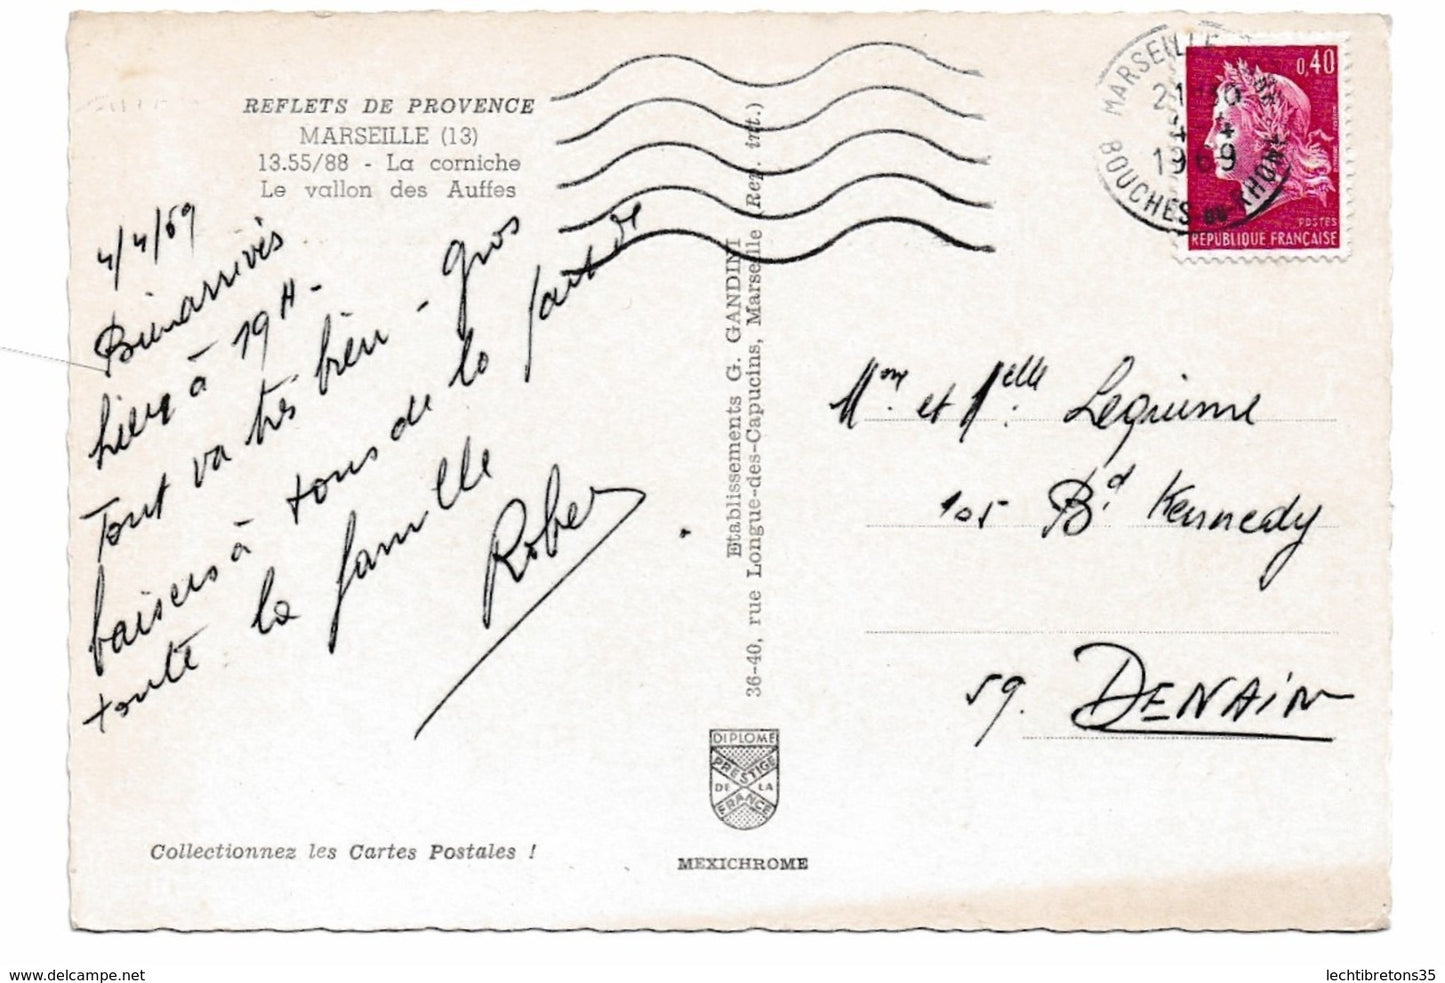 REFLETS DE PROVENCE
MARSEILLE (13)
13.55/88 - La corniche
Le vallon des Auffes
4/4/69
Bien arrivés
hier à 19H-
Tout va très bien - gros
baisers à tous de la part de
toute la famille
Rober
Etablissements G. GANDINI
36-40, rue Longue-des-Capucins, Marseille (Rep. int.)
MARSEILLE
21
4-4
1969
BOUCHES DU RHONE
0,40
POSTES
REPUBLIQUE FRANÇAISE
Mme et Melle Legrime
105 Bd Kennedy
59. DENAIN
DIPLOME
PRESTIGE
DE LA
FRANCE
MEXICHROME
Collectionnez les Cartes Postales !
www.delcampe.net
lechtibretons35